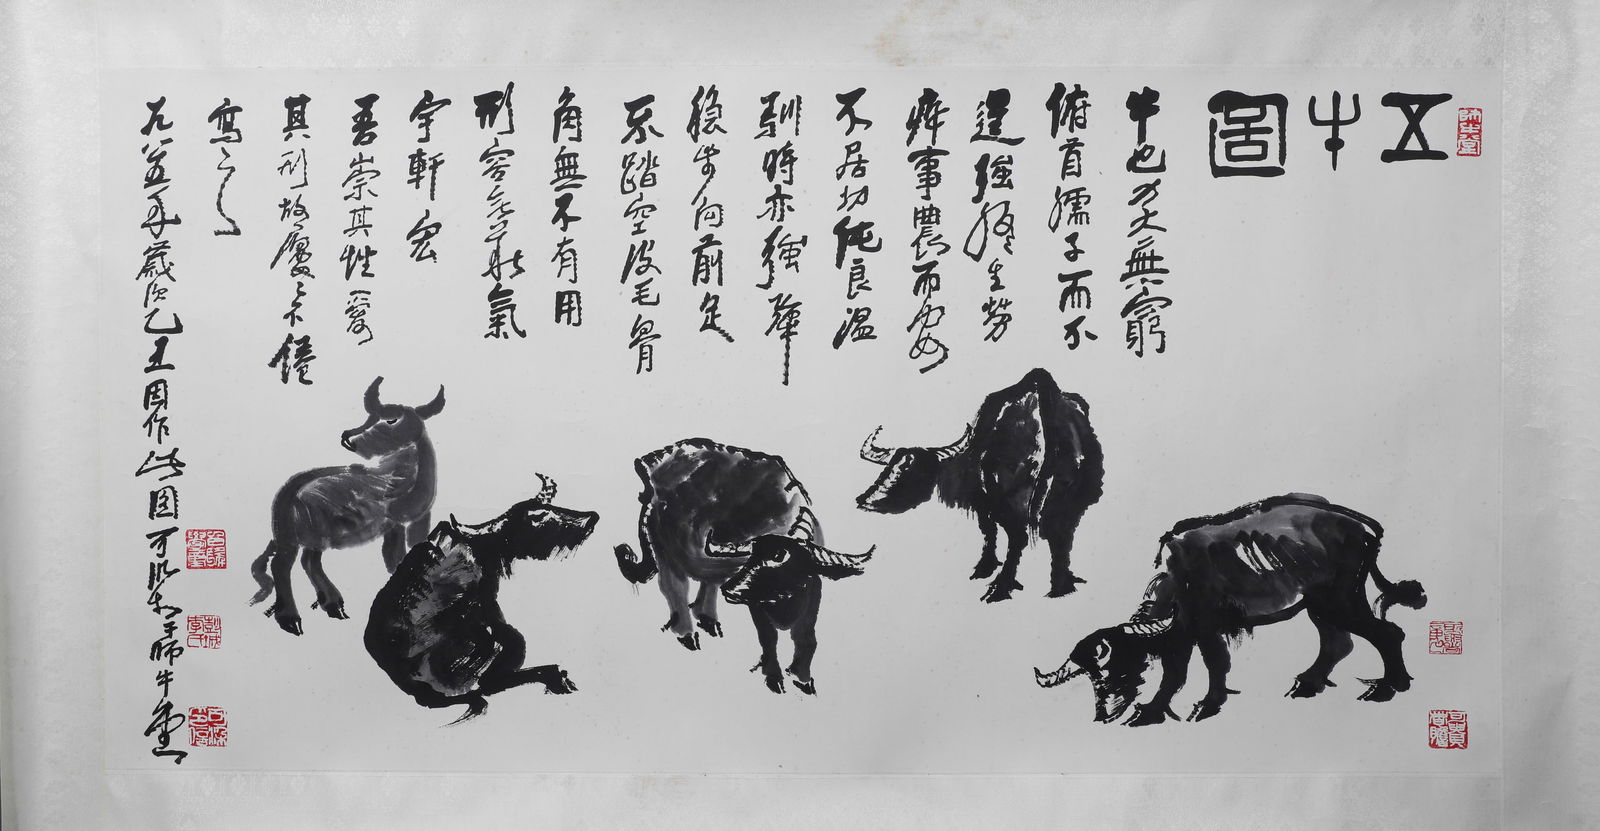 五牛圖
牛也力大無窮
俯首孺子而不
逞強終生勞
瘁事農而安
不居功純良溫
馴時亦強犟
穩步向前足
不踏空皮毛骨
角無不有用
形容無華氣
宇軒宏
吾崇其性愛
其形故屢々不倦
寫之
九八五年歲次乙丑因作此圖可染於師牛堂
師牛堂